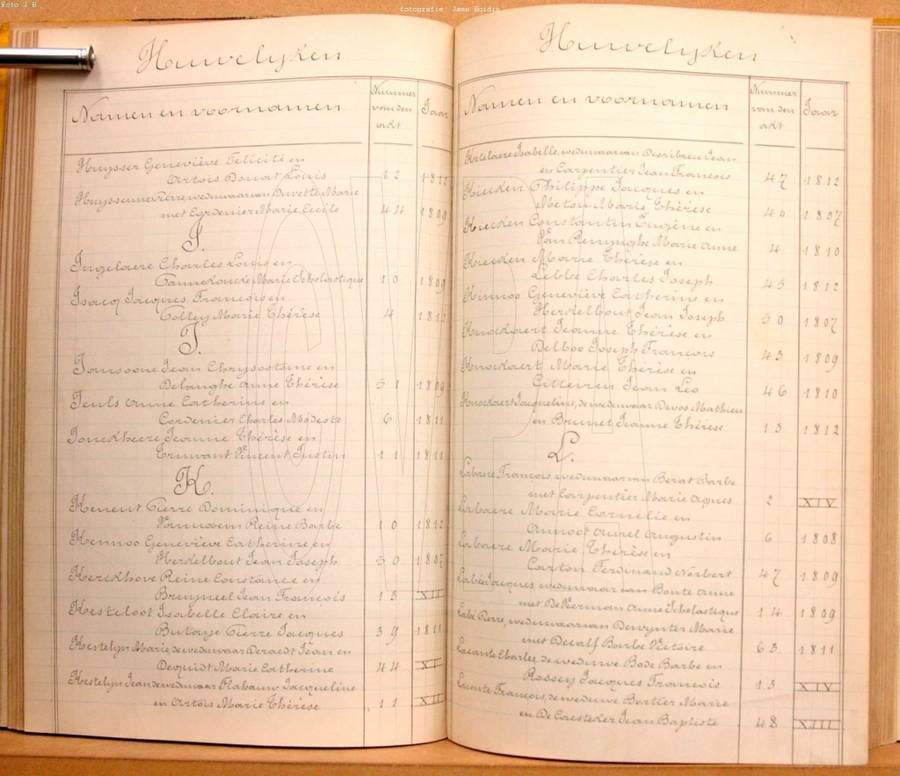 Foto J B.
fotografie: Jans Boidin
Huwelyken
Namen en voornamen
Nummer van den akt
Jaar
Huysser Geneviève Felicité en
Artois Donat Louis 12 1812
Huysseune Pierre, weduwaar van Buvette Marie
met Cordenier Marie Cecile 44 1809
I.
Ingelaere Charles Louis en
Cannekoudt Marie Scholastique 10 1809
Isacq Jacques François en
Colley Marie Thérèse 4 1812
J.
Jansoone Jean Chrysostome en
Delanghe Anne Thérèse 51 1806
Jeuls Anne Catherine en
Cordenier Charles Modeste 6 1811
Jonckheere Jeanne Thérèse en
Vincent Justin 11 1811
K.
Kement Pierre Dominique en
Reine Barbe 10 1812
Kennoo Geneviève Catherine en
Herdelbout Jean Joseph 50 1807
Kerckhove Reine Constance en
Bruyneel Jean François 13 XII
Kesteloot Isabelle Claire en
Butaye Pierre Jacques 39 1811
Kestelyn Marie, de weduwe Deraedt Jean en
Dequidt Marie Catherine 44
Kestelyn Jean de weduwaar Plabauw Jacqueline
en Artois Marie Thérèse 11 XII
Huwelyken
Namen en voornamen
Nummer van den akt
Jaar
Ketelaere Isabelle, weduwaar van Jean
en Carpentier Jean François 47 1812
Kieken Philippe Jacques en
Metsu Marie Thérèse 40 1807
Kieken Constantin Eugène en
Van Renynghe Marie Anne 4 1810
Kieken Marie Thérèse en
Lebbe Charles Joseph 45 1812
Kinnoo Geneviève Catherine en
Herdelbout Jean Joseph 50 1807
Knockaert Jeanne Thérèse en
Delboo Joseph François 43 1809
Knockaert Marie Thérèse en
Citteiren Jean Leo 46 1810
Knockaert Jacqueline, de weduwaar Devos Mathieu
en Brunet Jeanne Thérèse 13 1812
L.
Labaere François, weduwaar van Berat Barbe
met Carpentier Marie Agnes 2 XIV
Labaere Marie Cornelie en
Annoot Aurel Augustin 6 1808
Labaere Marie Thérèse en
Carton Ferdinand Norbert 47 1809
Labé Jacques weduwaar van Bonte Anne
met De Vierman Anne Scholastique 14 1809
Labé Pierre, weduwaar van Dewynter Marie
met Decalf Barbe Victoire 63 1811
Lacante Charles, de weduwe Bode Barbe en
Rossey Jacques François 13 XIV
Lacante François, de weduwe Bertier Marie
en De Coesteker Jean Baptiste 48 XIII